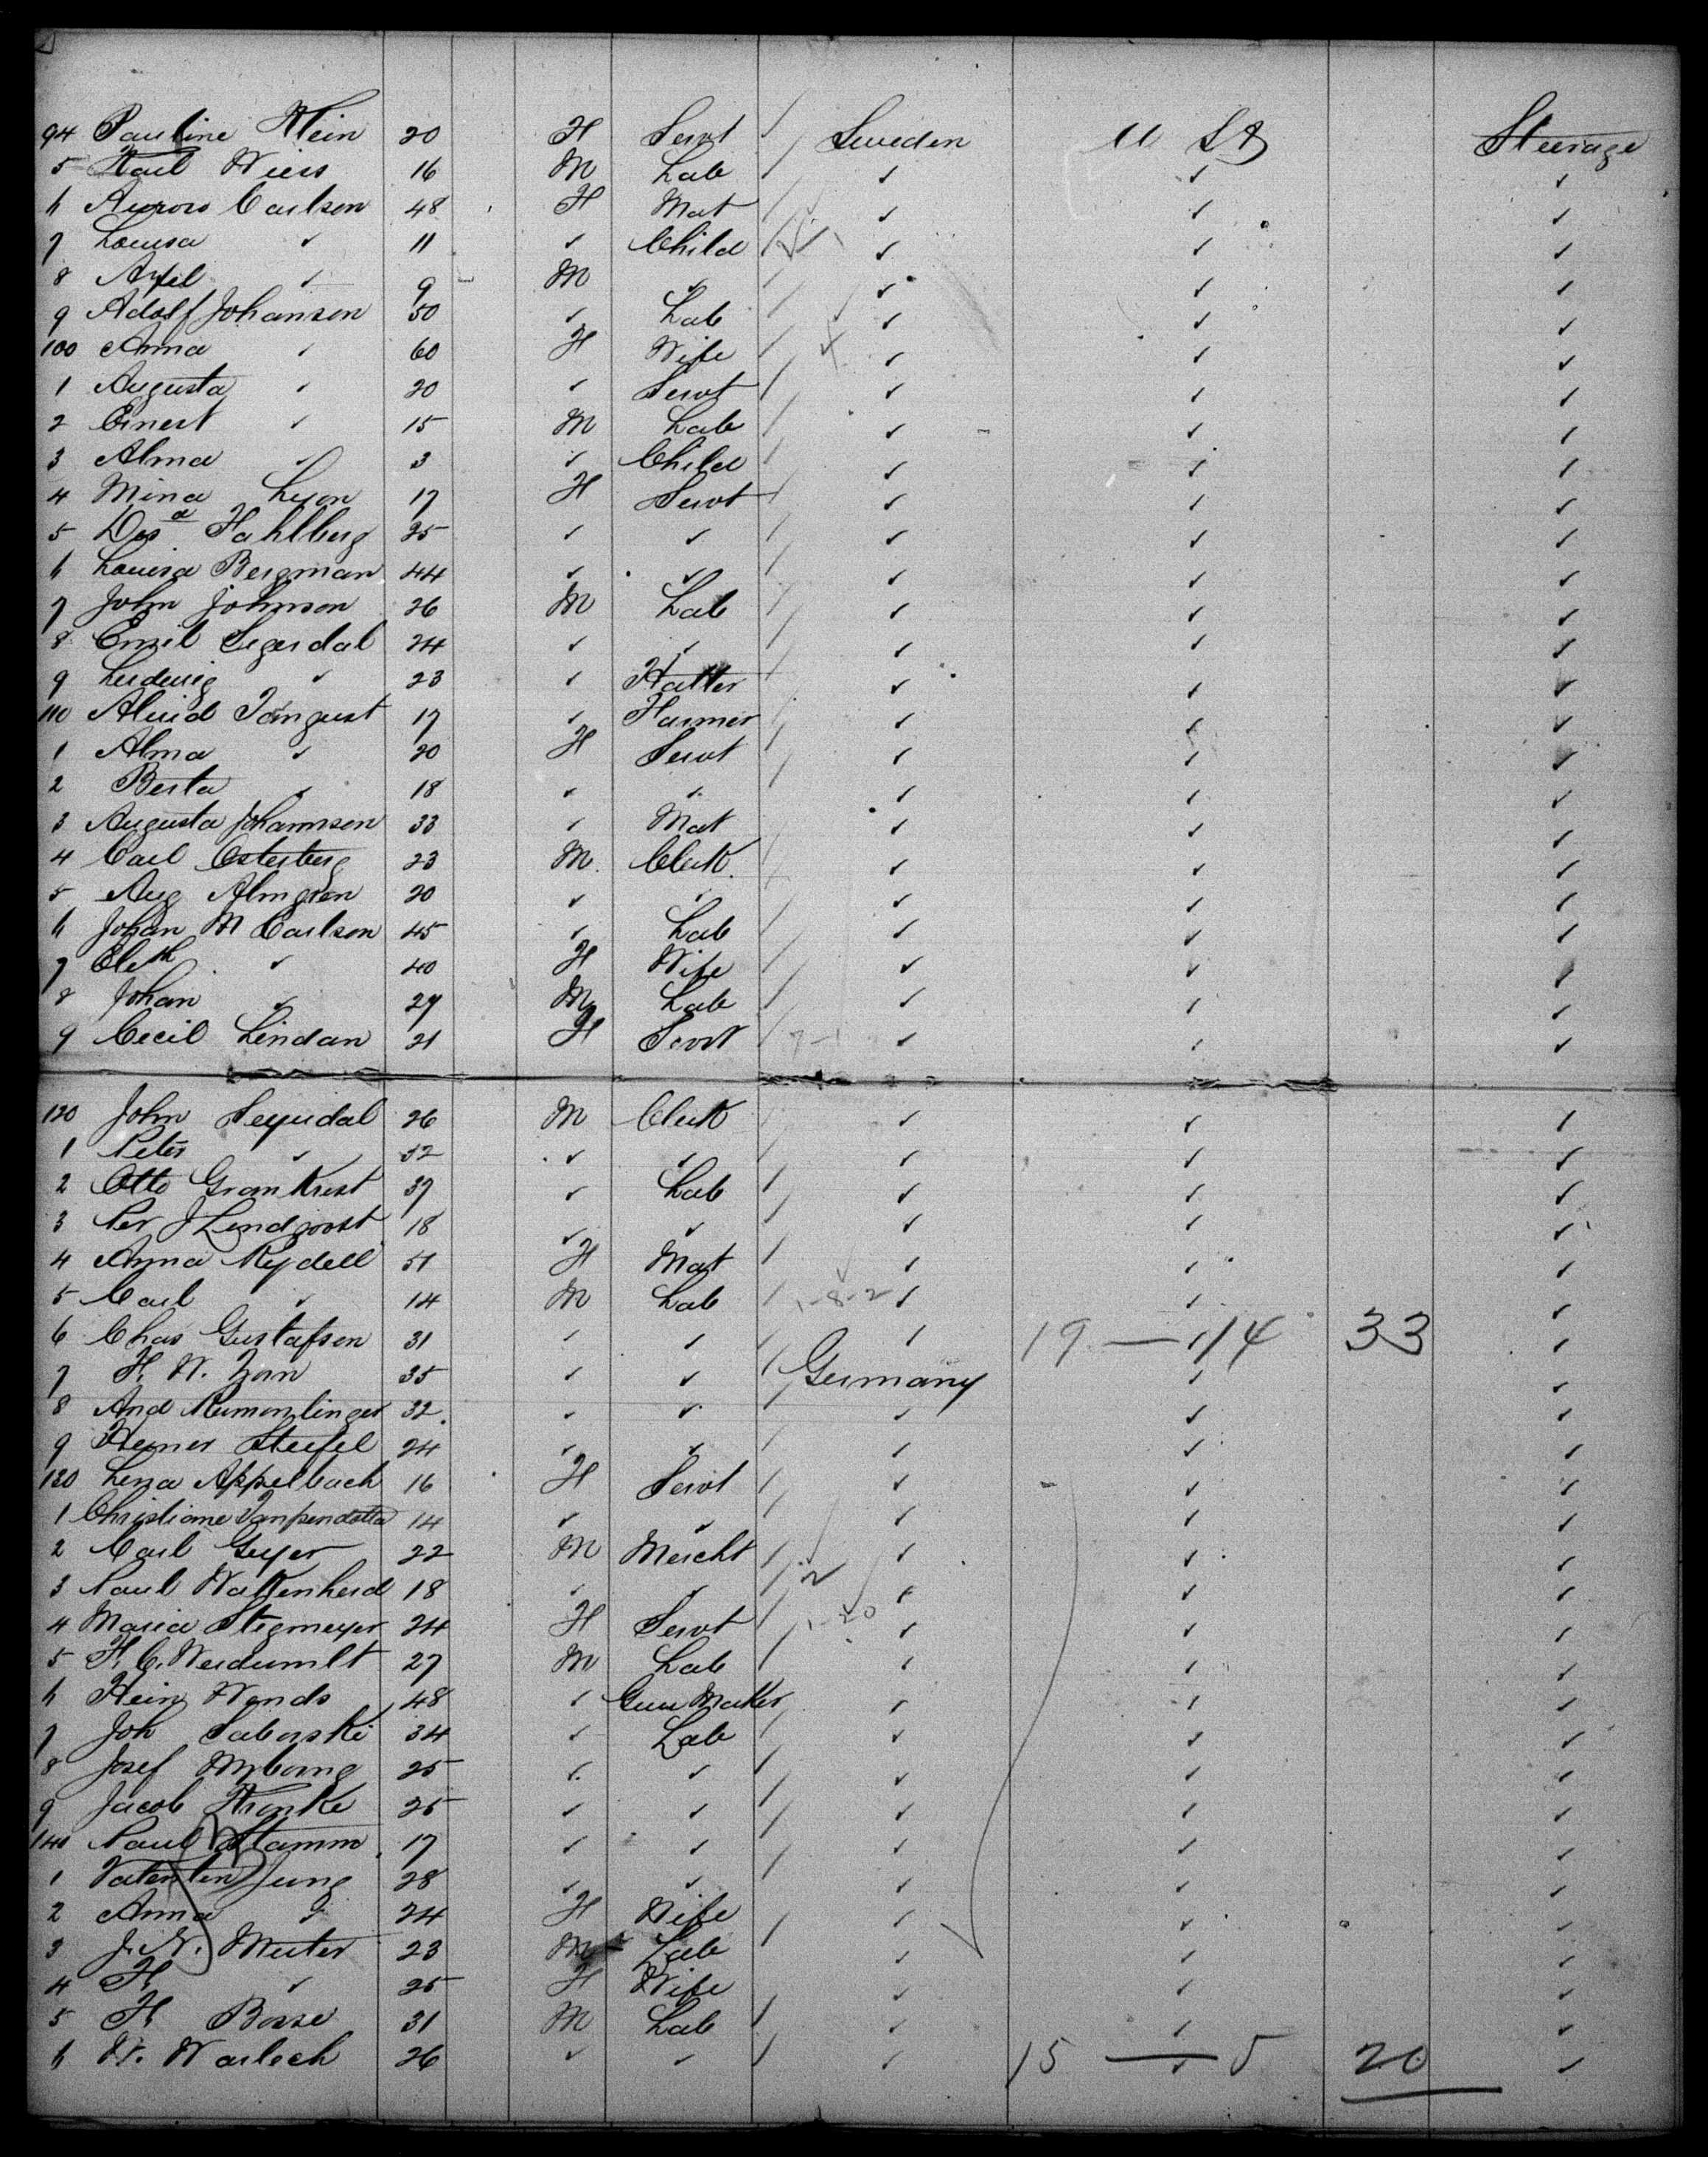 94 Pauline Klein 20 F Servt / Sweden U St Steerage
5 Karl Wiess 16 M Lab / ✓ ✓ ✓
6 Aurora Carlson 48 F Mat / ✓ ✓ ✓
7 Louisa ✓ 11 ✓ Child / ✓ ✓ ✓
8 Axel ✓ 9 M ✓ / ✓ ✓ ✓
9 Adolf Johanson 50 ✓ Lab / ✓ ✓ ✓
100 Anna ✓ 60 F Wife / ✓ ✓ ✓
1 Augusta ✓ 20 ✓ Servt / ✓ ✓ ✓
2 Ernest ✓ 15 M Lab / ✓ ✓ ✓
3 Alma ✓ 3 ✓ Child / ✓ ✓ ✓
4 Mina Lyon 17 F Servt / ✓ ✓ ✓
5 Fahlberg 25 ✓ ✓ / ✓ ✓ ✓
6 Louisa Bergman 44 ✓ ✓ / ✓ ✓ ✓
7 John Johnson 26 M Lab / ✓ ✓ ✓
8 Emil Segerdal 24 ✓ ✓ / ✓ ✓ ✓
9 Ludwig ✓ 23 ✓ Hatter / ✓ ✓ ✓
110 17 ✓ Farmer / ✓ ✓ ✓
1 Alma ✓ 20 F Servt / ✓ ✓ ✓
2 Berta ✓ 18 ✓ ✓ / ✓ ✓ ✓
3 Augusta Johannson 33 ✓ Mat / ✓ ✓ ✓
4 Carl Osterberg 23 M Clerk / ✓ ✓ ✓
5 Aug Almgren 20 ✓ ✓ / ✓ ✓ ✓
6 Johan M Carlson 45 ✓ Lab / ✓ ✓ ✓
7 Elsth ✓ 40 F Wife / ✓ ✓ ✓
8 Johan ✓ 29 M Lab / ✓ ✓ ✓
9 Cecil Lindan 21 F Servt / 7-1 ✓ ✓ ✓
120 John 26 M Clerk / ✓ ✓ ✓
1 Peter ✓ 32 ✓ ✓ / ✓ ✓ ✓
2 Otto Grankvist 39 ✓ Lab / ✓ ✓ ✓
3 Per J Lindqvist 18 ✓ ✓ / ✓ ✓ ✓
4 Anna Rydell 51 F Mat / ✓ ✓ ✓
5 Carl ✓ 14 M Lab / 1-8-2 ✓ ✓ ✓
6 Chas Gustafson 31 ✓ ✓ / ✓ 19 — 14 33 ✓
7 F. W. Zorn 35 ✓ ✓ / Germany ✓ ✓
8 And 32 ✓ ✓ / ✓ ✓ ✓
9 Steifel 24 ✓ ✓ / ✓ ✓ ✓
130 Lena Appelbach 16 F Servt / ✓ ✓ ✓
1 Christiane 14 ✓ ✓ / ✓ ✓ ✓
2 Carl Geyer 22 M Mercht / ✓ ✓ ✓
3 Paul 18 ✓ ✓ / ✓ ✓ ✓
4 Maria Stegmeyer 24 F Servt / ✓ ✓ ✓
5 F. C. 27 M Lab / ✓ ✓ ✓
6 Hein Wends 48 ✓ Gun Maker ✓ ✓ ✓
7 Joh Saborski 34 ✓ Lab / ✓ ✓ ✓
8 Josef 25 ✓ ✓ / ✓ ✓ ✓
9 Jacob Kronke 25 ✓ ✓ / ✓ ✓ ✓
140 Paul Stamm 17 ✓ ✓ / ✓ ✓ ✓
1 Valentin Jung 28 ✓ ✓ / ✓ ✓ ✓
2 Anna ✓ 24 F Wife / ✓ ✓ ✓
3 J. N. 23 M Lab ✓ ✓ ✓
4 F. ✓ 25 F Wife ✓ ✓ ✓
5 F. Bosse 31 M Lab / ✓ ✓ ✓
6 W. Warlech 26 ✓ ✓ / ✓ 15 — 5 20 ✓